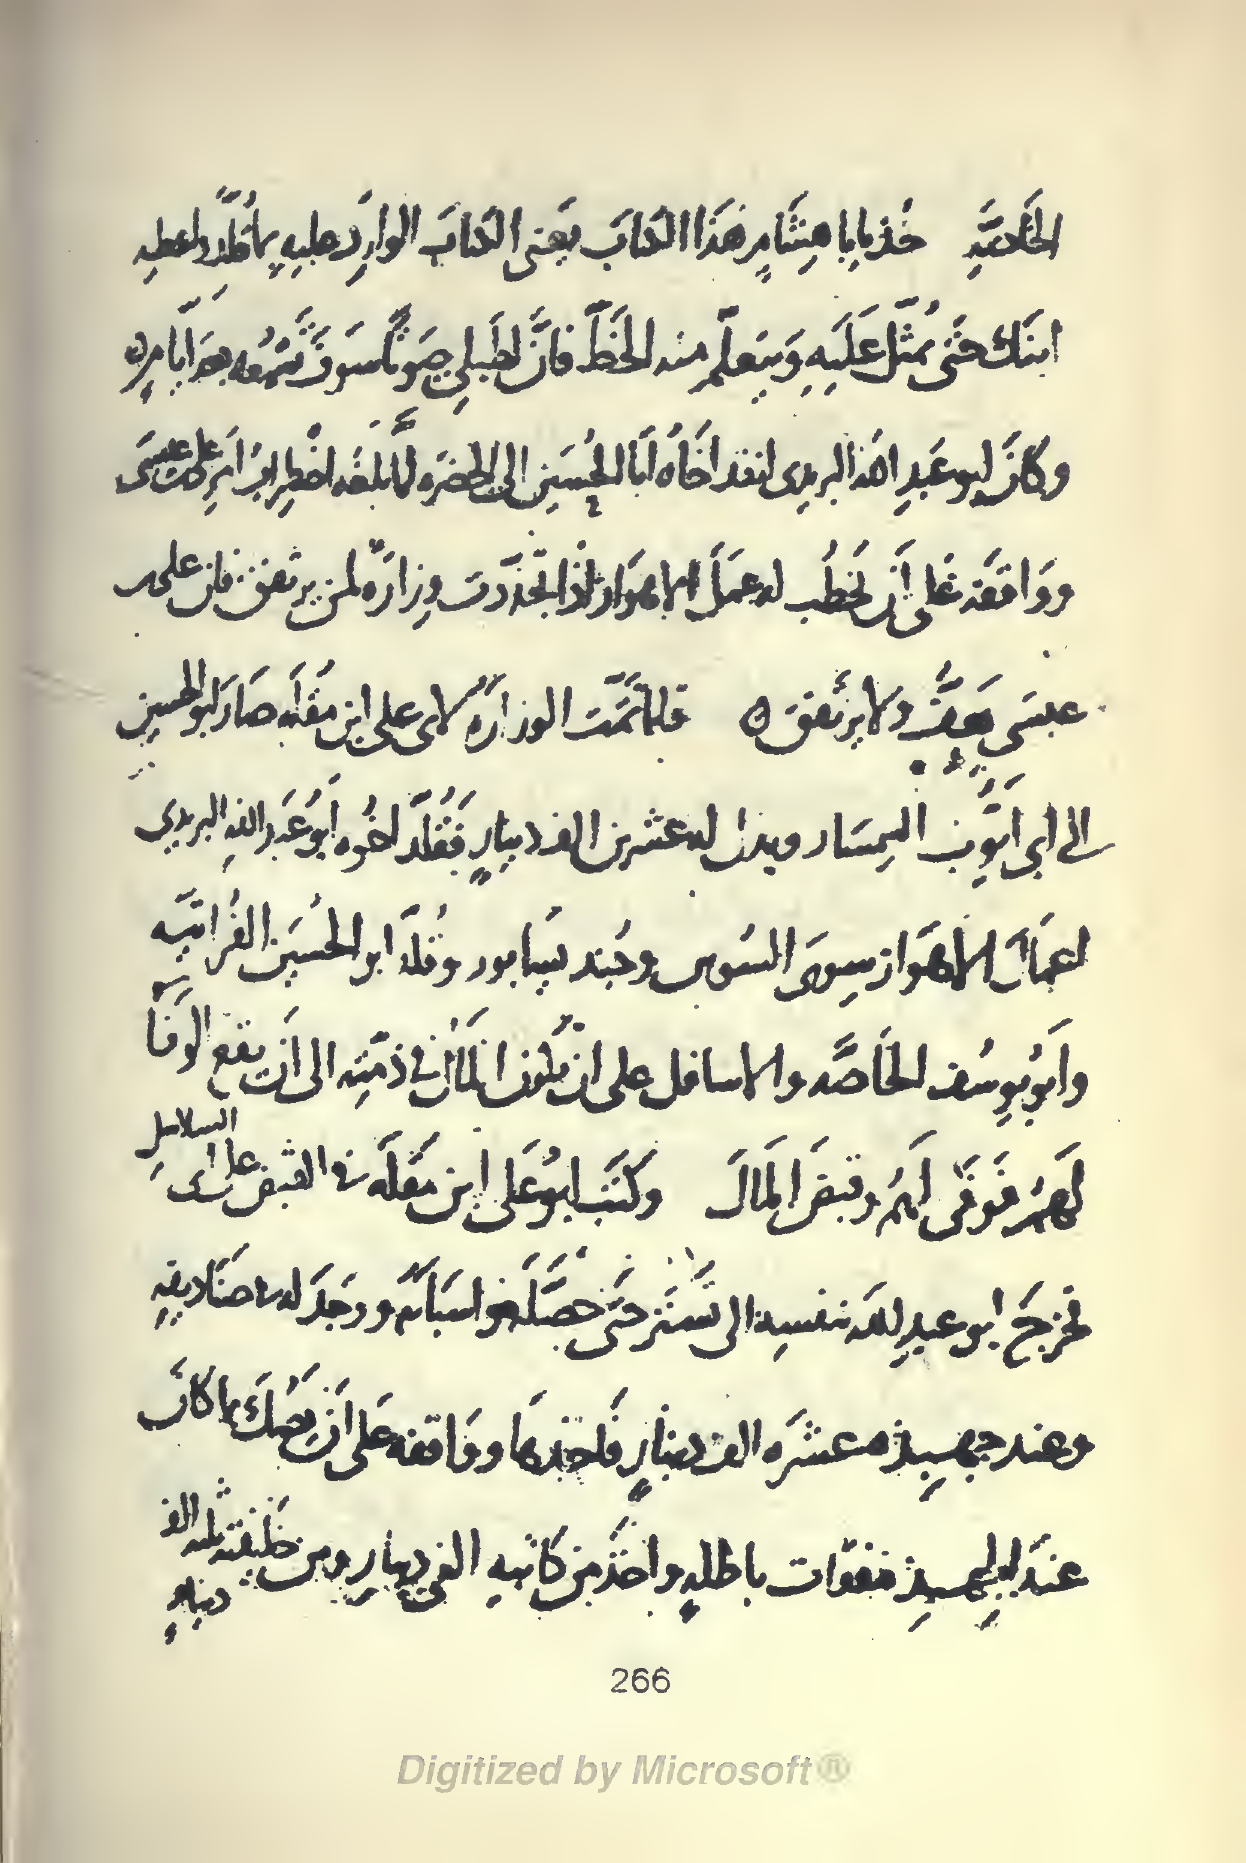 الخَادمَيَّةِ خُذ يا با هِشَام هَذَا الكتابَ يَعنى الكتابَ الوارِدَ عليهِ بما قُلِّدَ واعطِهِ
ابنَكَ حَتى يُمثّلَ عَلَيهِ وَيَتعلّم منه الخَطَّ فانَّ لطبلى صَوتًا سَوفَ تسمَعُه بعدَ ايَّامٍ
وكانَ ابو عَبدِ الله البريدى انفذ اخَاهُ ابَا الحُسَين الى الحضرَه لمَّا بلغَه اضطِرابُ امرِ على بن عيسَى
ووَاقفَه عَلى أن يَخطُب له عمَلَ الاهوَاز اذا تجدَّدت وِزارَةٌ لمن يرتفق فان على بن
عيسَى يَعفُّ ولا يرتفقَ ٥ فلمَّا تمَّت الوزارَةُ لابى على ابن مُقلَه صَارَ ابو الحسين
الى ابى ايّوب السِمسَار وبذل له عشرين الف دينارٍ فقُلِّدَ اخُوه أبو عَبدِ اللهِ البريدى
اعمالَ الاهوَاز سِوى السُوس وجُند يسابور وقُلّدَ ابو الحُسَين الفُرَاتيَّه
وأبو يوسُف الخَاصَّه والاسافل على ان يكون المالُ فى ذمّتِه الى أن يقعَ الوَفَا
لَهمُ فَوَفى لَهمُ وقبضَ المالَ وكتَبَ ابو عَلى ابن مُقلَه فى القبض على ابن السلاسل
فخرجَ ابو عبدِ اللهِ بنفسِه الى تُستَر حَتّى حَصَّلَه واسبابَه ووَجَدَ له فى صنَاديقِهِ
وعند جهبِذه عشَرَه الف دينارٍ فاخذهَا ووَاقفه عَلى أن يصُكَّ بما كانَ
عندَ الجهبِذ نفقات باطلهٍ واخذَ من كاتبهِ الفى دينارٍ ومن خليفتِه ثلثه الف
دينارٍ
266
Digitized by Microsoft®